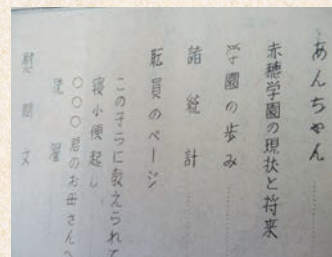 あんちゃん
赤穂学園の現状と将来
学園の歩み
諸統計
職員のページ
この子らに教えられて
寝小便起し
〇〇〇君のお母さんへ
洗濯
慰問文